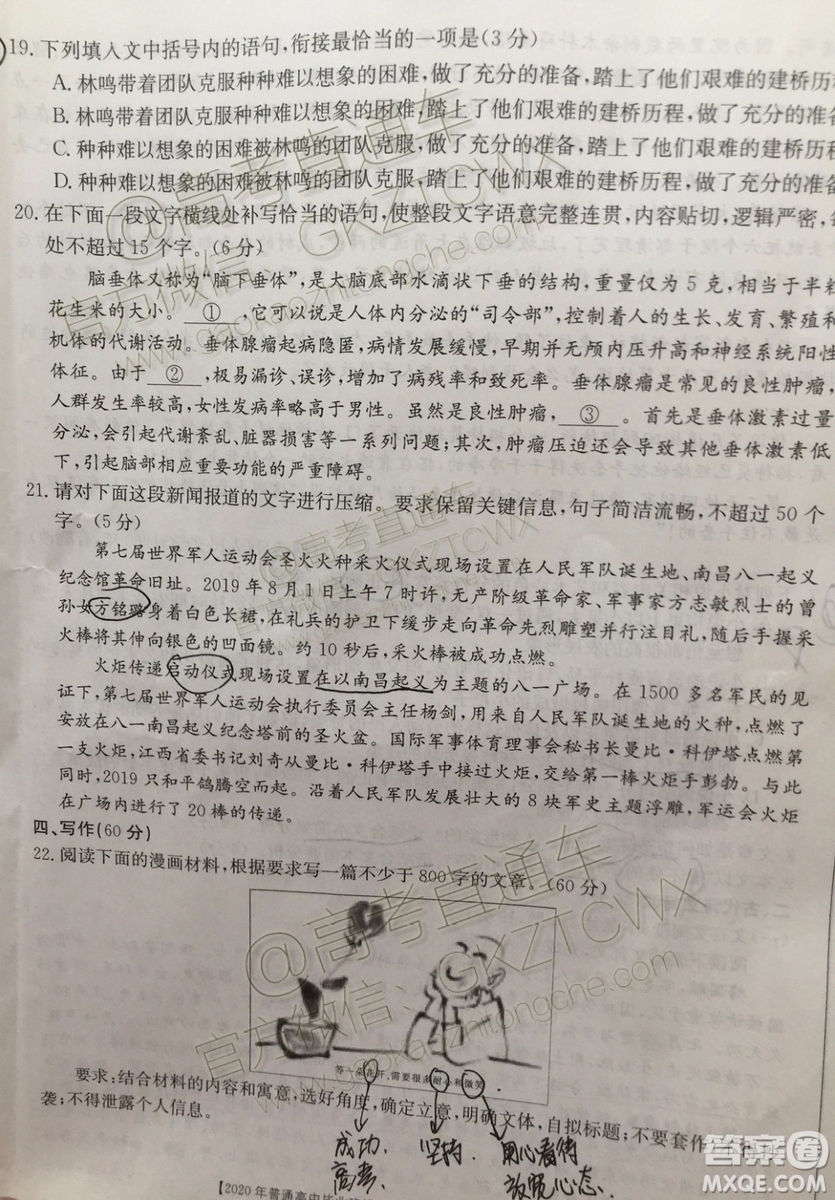 19. 下列填入文中括号内的语句,衔接最恰当的一项是(3分)
A. 林鸣带着团队克服种种难以想象的困难,做了充分的准备,踏上了他们艰难的建桥历
B. 林鸣带着团队克服种种难以想象的困难,踏上了他们艰难的建桥历程,做了充分的准备
C. 种种难以想象的困难被林鸣的团队克服,做了充分的准备,踏上了他们艰难的建桥历程
D. 种种难以想象的困难被林鸣的团队克服,踏上了他们艰难的建桥历程,做了充分的准备
20. 在下面一段文字横线处补写恰当的语句,使整段文字语意完整连贯,内容贴切,逻辑严密,
处不超过15个字。(6分)
脑垂体又称为“脑下垂体”,是大脑底部水滴状下垂的结构,重量仅为5克,相当于半粒
花生米的大小。 ① ,它可以说是人体内分泌的“司令部”,控制着人的生长、发育、繁殖和
机体的代谢活动。垂体腺瘤起病隐匿,病情发展缓慢,早期并无颅内压升高和神经系统阳性
体征。由于 ② ,极易漏诊、误诊,增加了病残率和致死率。垂体腺瘤是常见的良性肿瘤,
人群发生率较高,女性发病率略高于男性。虽然是良性肿瘤, ③ 。首先是垂体激素过量
分泌,会引起代谢紊乱、脏器损害等一系列问题;其次,肿瘤压迫还会导致其他垂体激素低
下,引起脑部相应重要功能的严重障碍。
21. 请对下面这段新闻报道的文字进行压缩。要求保留关键信息,句子简洁流畅,不超过50个
字。(5分)
第七届世界军人运动会圣火火种采火仪式现场设置在人民军队诞生地、南昌八一起义
纪念馆革命旧址。2019年8月1日上午7时许,无产阶级革命家、军事家方志敏烈士的曾
孙女方铭璐身着白色长裙,在礼兵的护卫下缓步走向革命先烈雕塑并行注目礼,随后手握采
火棒将其伸向银色的凹面镜。约10秒后,采火棒被成功点燃。
火炬传递启动仪式现场设置在以南昌起义为主题的八一广场。在1500多名军民的见
证下,第七届世界军人运动会执行委员会主任杨剑,用来自人民军队诞生地的火种,点燃了
安放在八一南昌起义纪念塔前的圣火盆。国际军事体育理事会秘书长曼比·科伊塔点燃第
一支火炬,江西省委书记刘奇从曼比·科伊塔手中接过火炬,交给第一棒火炬手彭勃。与此
同时,2019只和平鸽腾空而起。沿着人民军队发展壮大的8块军史主题浮雕,军运会火炬
在广场内进行了20棒的传递。
四、写作(60分)
22. 阅读下面的漫画材料,根据要求写一篇不少于800字的文章。(60分)
等一朵花开,需要很多耐心和微笑
要求:结合材料的内容和寓意,选好角度,确定立意,明确文体,自拟标题;不要套作,
袭;不得泄露个人信息。
成功、 坚持、 用心看待
高考、 放宽心态.
【2020年普通高中毕业
@高考直通车
官方微信:GKZTCWX
www.gaokaozhitongche.com
答案卷